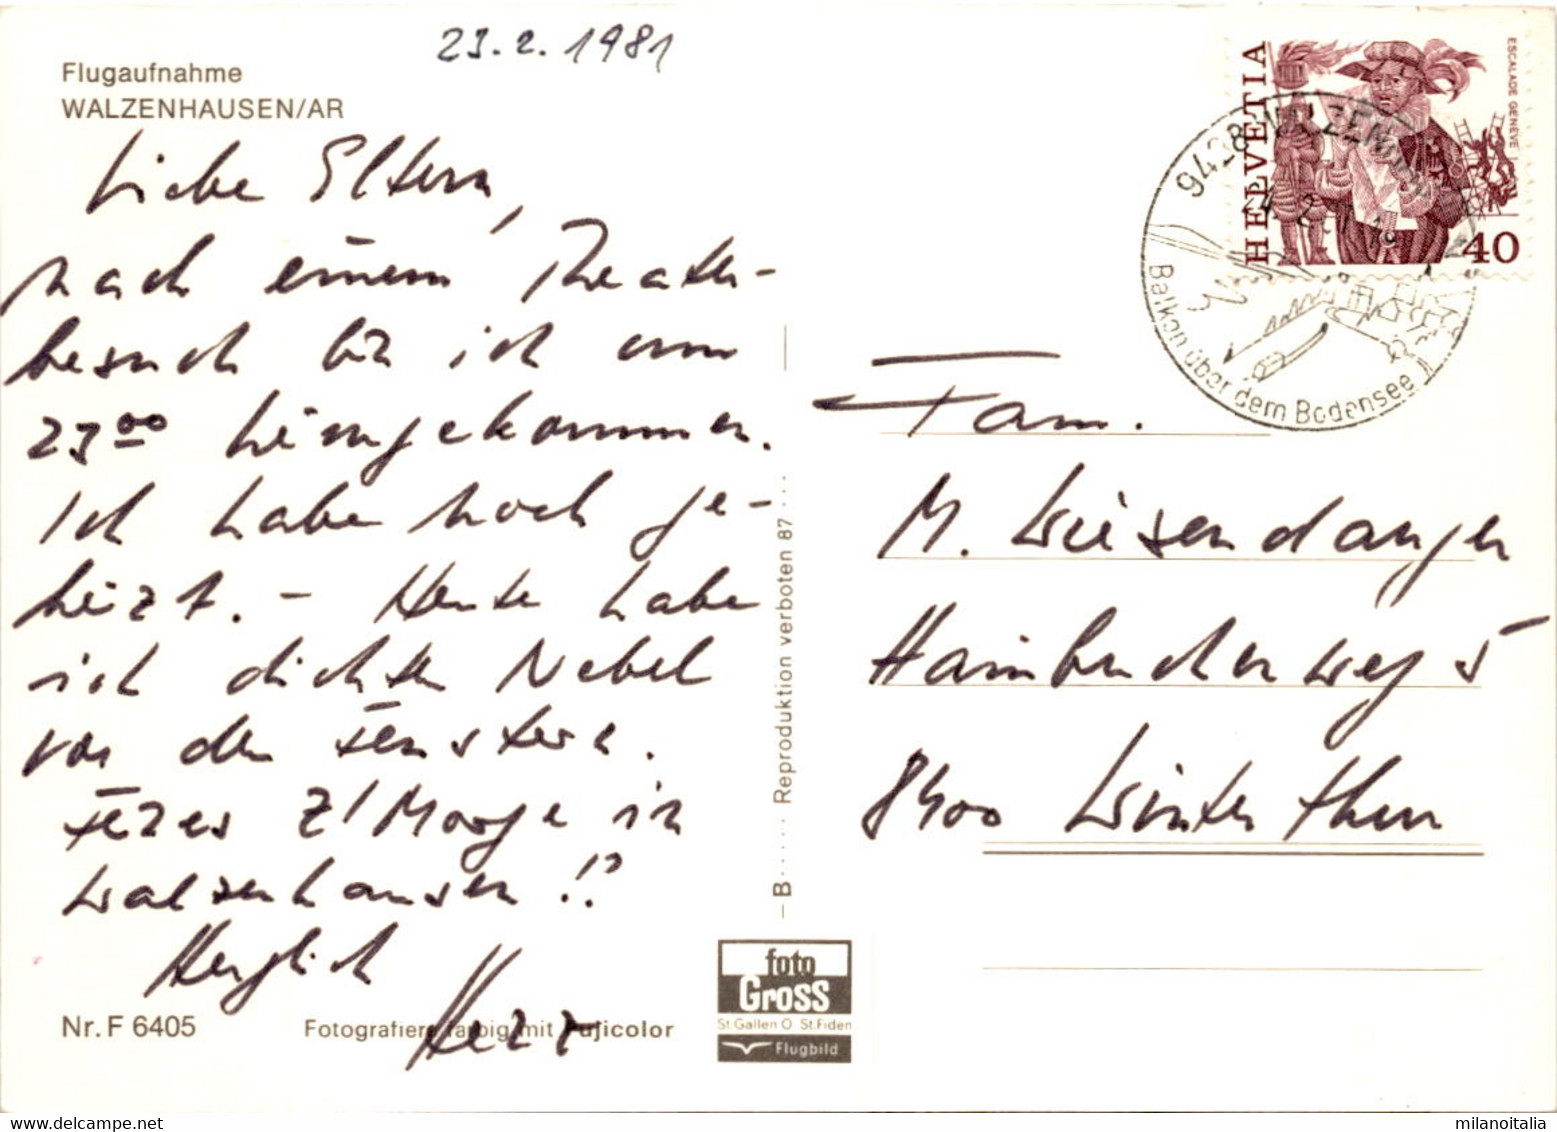 23.2.1981
Flugaufnahme
WALZENHAUSEN/AR
Liebe Eltern,
nach einem Theater-
besuch bin ich um
23⁰⁰ heimgekommen.
Ich habe noch ge-
heizt. – Heute habe
ich dichten Nebel
vor den Fenstern.
z'Morge in
Walzenhausen!?
Herzlich
Nr. F 6405
Fotografiere farbig mit Fujicolor
B..... Reproduktion verboten 87...
foto
Gross
St. Gallen O St. Fiden
Flugbild
HELVETIA
ESCALADE GENÈVE
40
9428 WALZENHAUSEN
24.2.81-19
Balkon über dem Bodensee
Fam.
M. Wiesendanger
Haimbucherweg 5
8400 Winterthur
milanoitalia